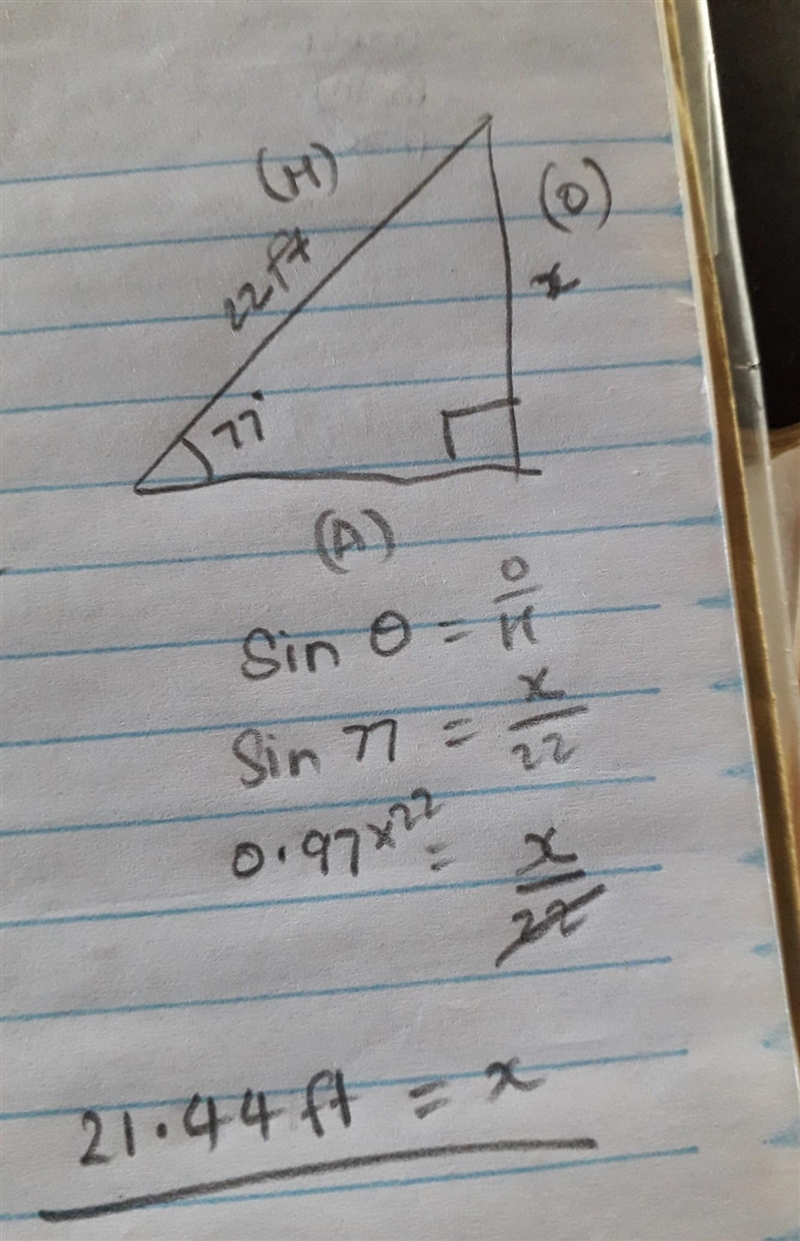 (H)
(O)
22ft
x
77°
(A)
Sin θ = O/H
Sin 77 = x/22
0.97 x 22 = x/22
21.44 ft = x